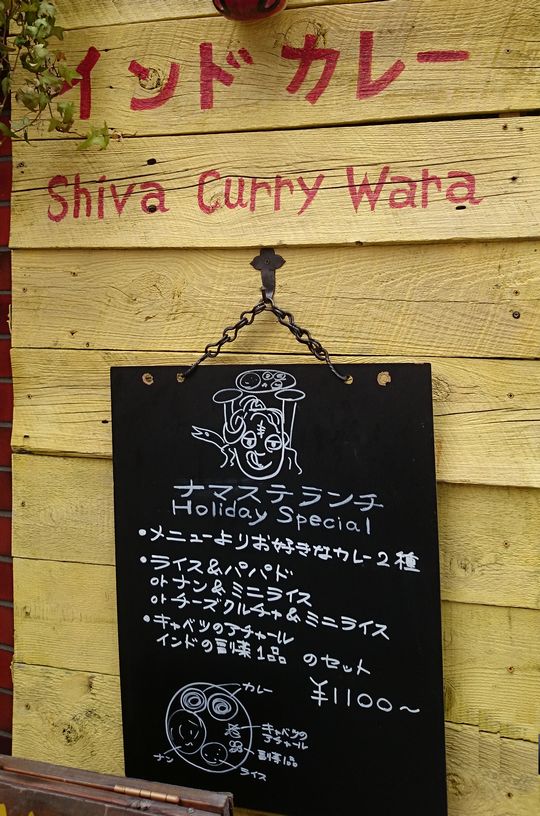 インドカレー
Shiva Curry Wara
ナマステランチ
Holiday Special
•メニューよりお好きなカレー2種
•ライス&パパド
orナン&ミニライス
orチーズクルチャ&ミニライス
•キャベツのアチャール
インドの副菜1品 のセット
¥1100~
カレー
キャベツの
アチャール
副菜1品
ナン
ライス